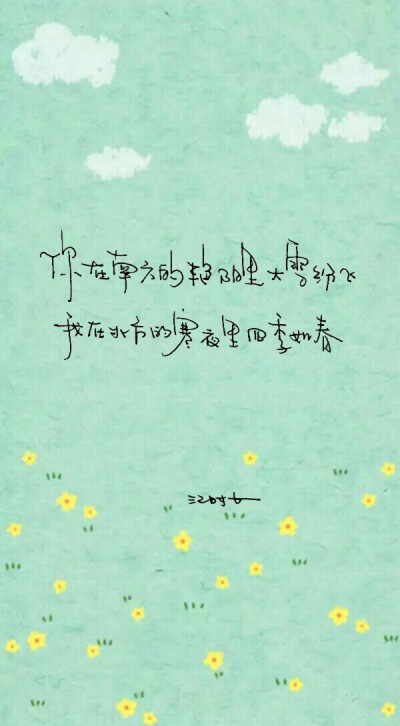 你在南方的艳阳里大雪纷飞
我在北方的寒夜里四季如春